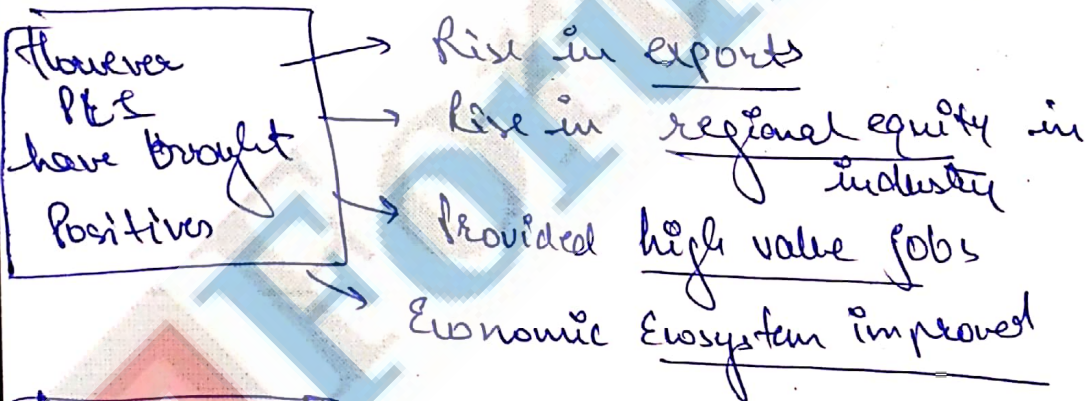 However
PLI
have brought
Positives
Rise in exports
Rise in regional equity in
industry
Provided high value jobs
Economic Ecosystem improved